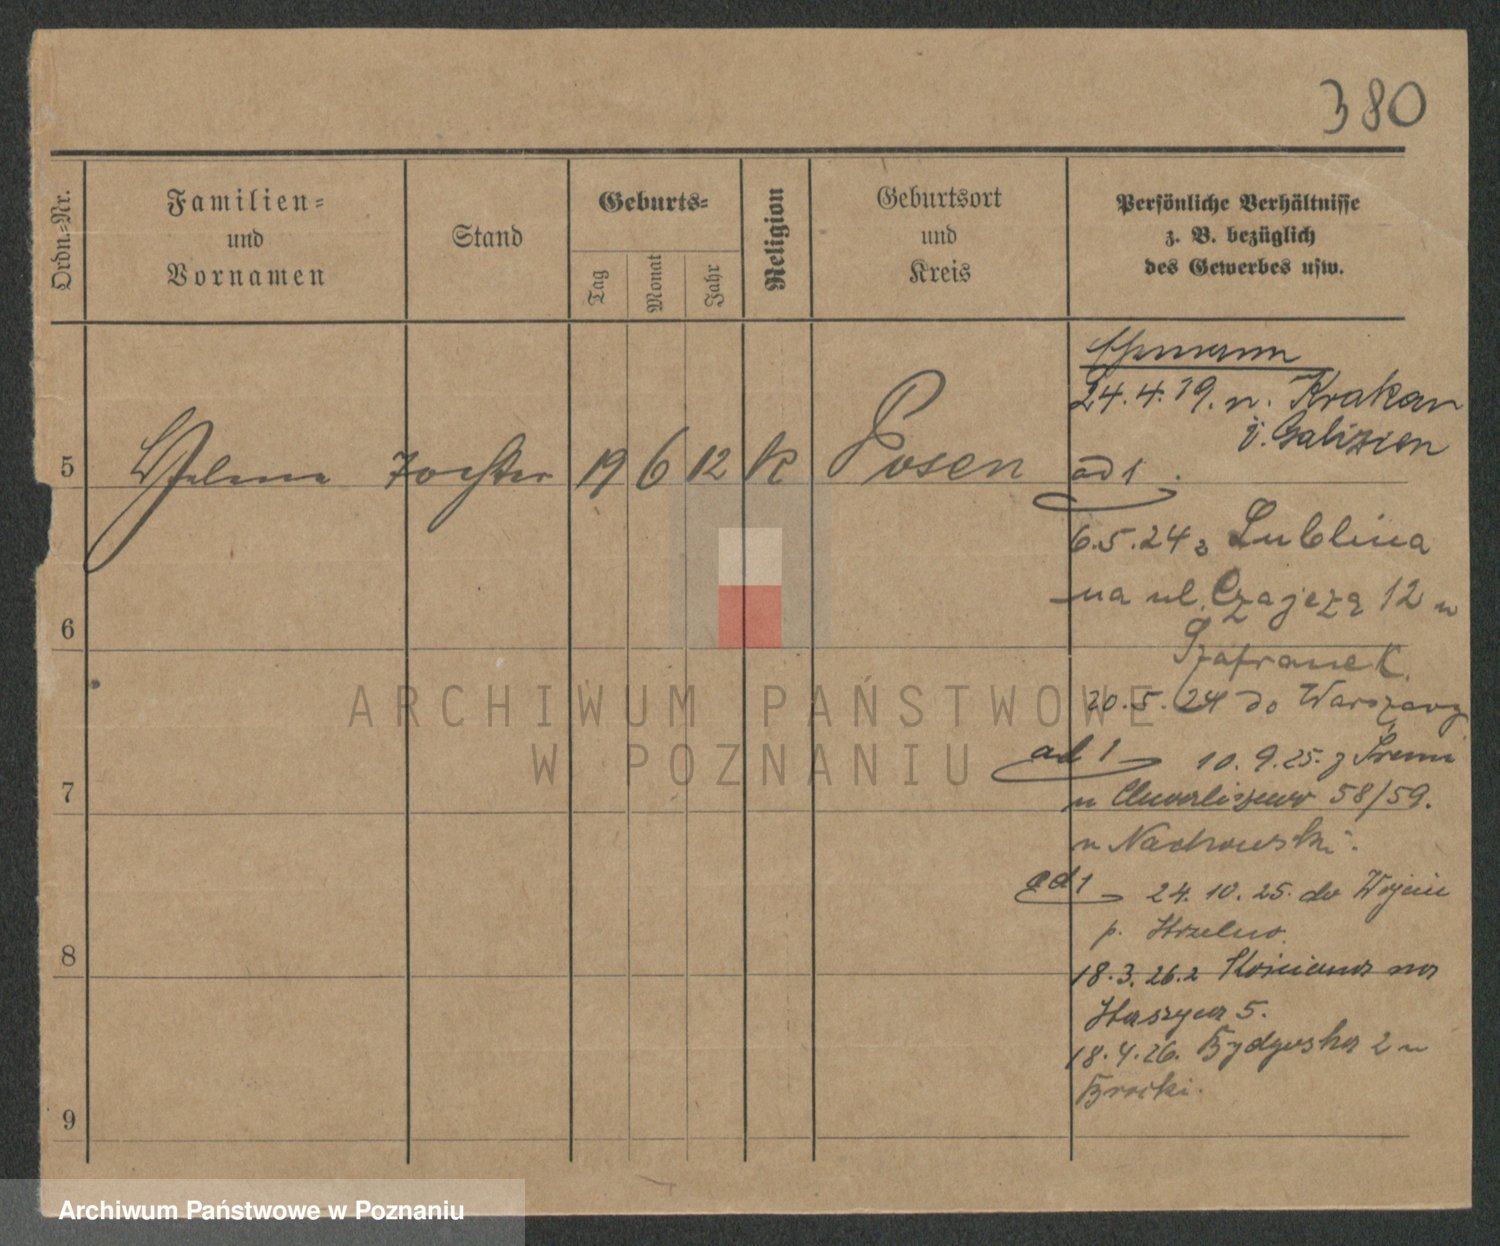 380
Ordn.-Nr.
Familien-
und
Vornamen
Stand
Geburts-
Tag
Monat
Jahr
Religion
Geburtsort
und
Kreis
Persönliche Verhältnisse
z. B. bezüglich
des Gewerbes usw.
Ehemann
24.4.19. n. Krakau
i. Galizien
5 Helene Tochter 19 6 12 K Posen
ad 1.
6.5.24 z Lublina
na ul. 12 u
6
Szafranek.
20.5.24 do Warszawy
ad 1 10.9.25. z Śremu
7
u Chwaliszewo 58/59.
u Nachowski.
ad 1 24.10.25. do Wójcin
p. Strzelno.
8
18.3.26. z Kościana na
5.
18.4.26. Bydgoska 2 u
9
ARCHIWUM PAŃSTWOWE
W POZNANIU
Archiwum Państwowe w Poznaniu